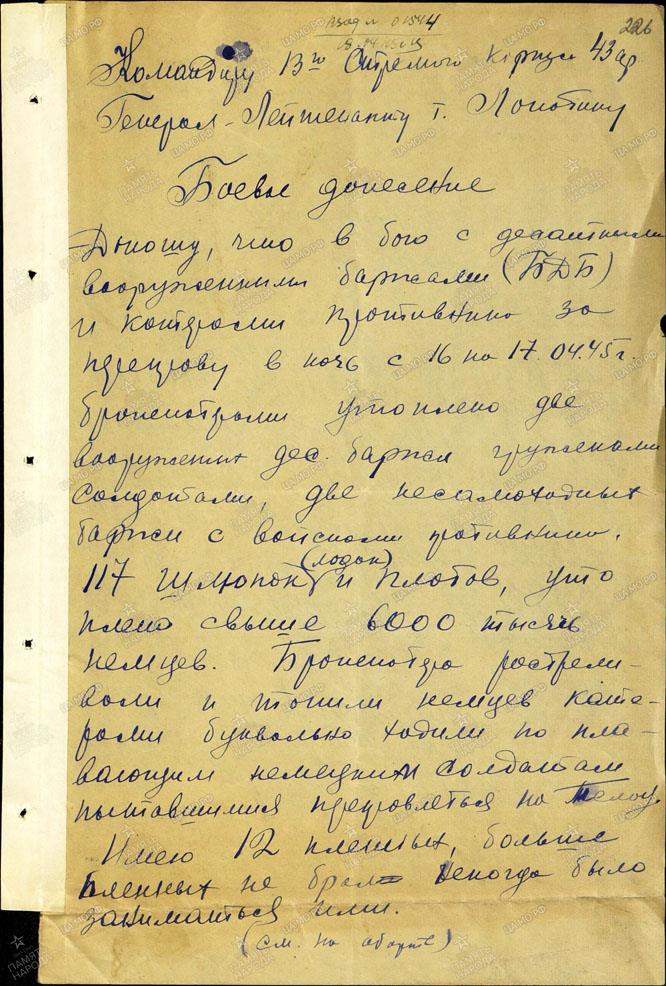 226
Командиру 13го Стрелкого Корпуса 43 ар.
Генерал-Лейтенанту т. Лопотину
Боевое донесение
Доношу, что в бою с десантными
вооруженными баржами (БДБ)
и катерами противника за
переправу в ночь с 16 на 17.04.45г.
бронекатерами утоплено две
вооруженных дес. баржи груженами
солдатами, две несамоходных
баржи с войсками противника,
117 шлюпок (лодок) и плотов, уто
плено свыше 6000 тысяч
немцев. Бронекатера растрели-
вали и топили немцев кате-
рами буквально ходили по пла-
вающим немецким солдатам
пытавшимися переправляться на
Имею 12 пленных, больше
пленных не брал некогда было
заниматься ими.
(см. на обороте)